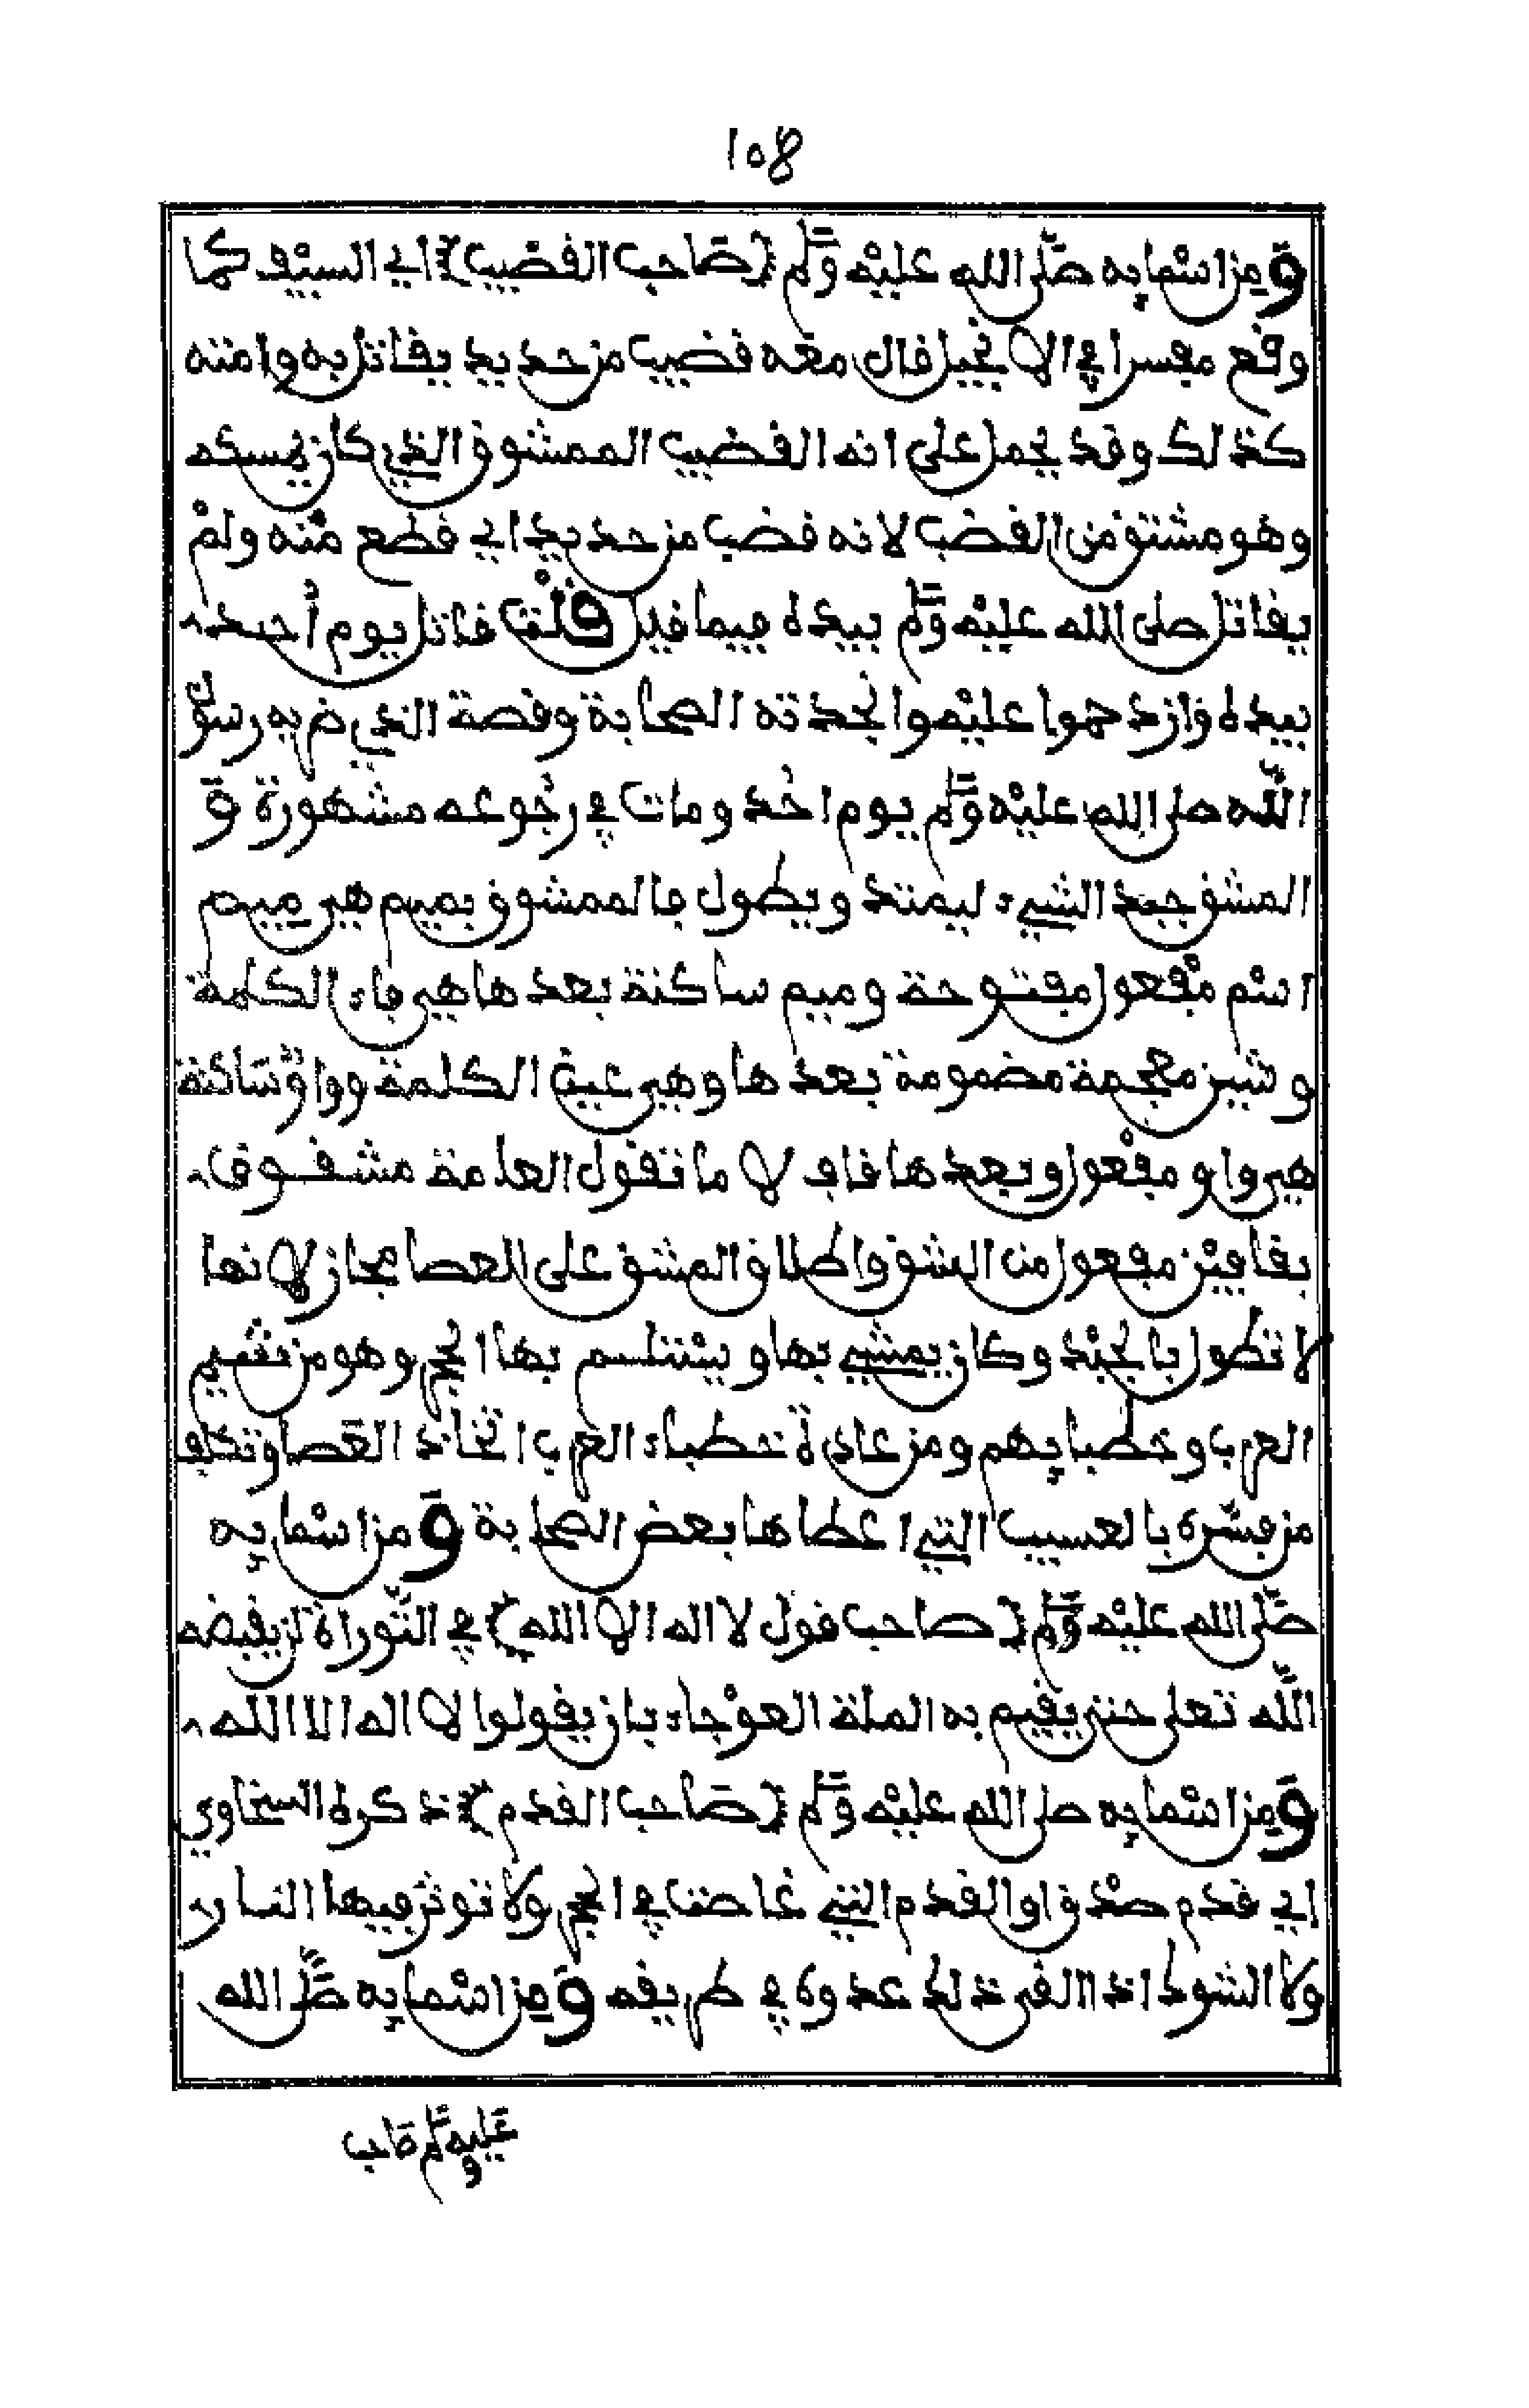 108
ومن اسمايه صلى الله عليه وسلم {صاحب القضيب} اي السيف كما
وقع مفسرا في الانجيل قال معه قضيب من حديد يقاتل به وامته
كذلك وقد يحمل على انه القضيب الممشوق الذي كان يمسكه
وهو مشتق من القضب لانه قضب من حديد اي قطع منه ولم
يقاتل صلى الله عليه وسلم بيده فيما قيل قلت قاتل يوم أحد
بيده وازدحموا عليه وانجدته الصحابة وقصة الذي ضربه رسول
الله صلى الله عليه وسلم يوم احد ومات في رجوعه مشهورة و
المشق جبد الشيء ليمتد ويطول فالممشوق بميم هي ميم
اسم مفعول مفتوحة وميم ساكنة بعدها هي فاء الكلمة
وشين معجمة مضمومة بعدها وهي عين الكلمة وواو ساكنة
هي واو مفعول وبعدها قاف لا ما تقول العامة مشقوق
بقافين مفعول من الشق واطلاق المشق على العصا مجاز لانها
لا تطول بالجبد وكان يمشي بها ويستلم بها الحجر وهو من شيم
العرب وخطبايهم ومن عادة خطباء العرب اتخاذ العصا
من فسره بالعسيب التي اعطاها بعض الصحابة ومن اسمايه
صلى الله عليه وسلم {صاحب قول لا اله الا الله} في التوراة لن يقبضه
الله تعلى حتى يقيم به الملة العوجاء بان يقولوا لا اله الا الله
ومن اسمايه صلى الله عليه وسلم {صاحب القدم} ذكره السخاوي
اي قدم صدق او القدم التي غاصت في الحجر ولا توثر فيها النار
ولا الشوك اذا القى ذلك عدوه في طريقه ومن اسمايه صلى الله
عليه وسلم صاحب